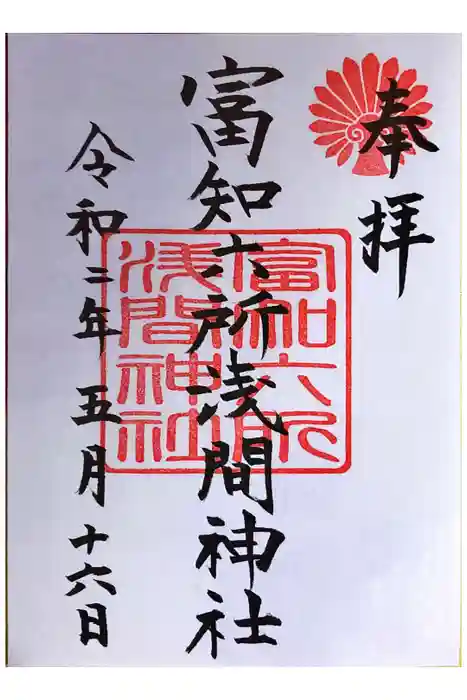 奉拝
富知六所浅間神社
令和二年五月十六日
富知六所
浅間神社